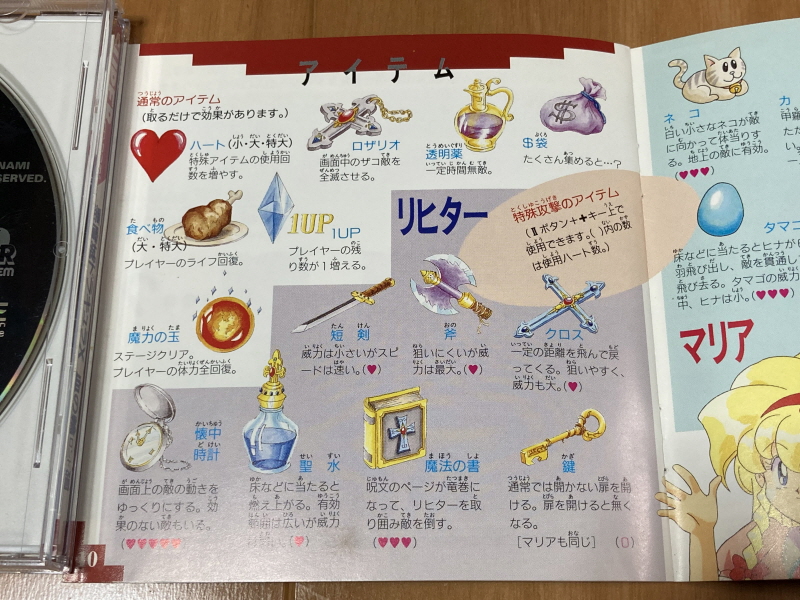 アイテム
通常のアイテム
(取るだけで効果があります。)
ハート(小・大・特大)
特殊アイテムの使用回
数を増やす。
ロザリオ
画面中のザコ敵を
全滅させる。
透明薬
一定時間無敵。
$袋
たくさん集めると…?
食べ物
(大・特大)
プレイヤーのライフ回復。
1UP
1UP
プレイヤーの残
り数が1増える。
魔力の玉
ステージクリア。
プレイヤーの体力全回復。
リヒター
特殊攻撃のアイテム
(Ⅱボタン+✚キー上で
使用できます。()内の数
は使用ハート数。)
短剣
威力は小さいがスピ
ードは速い。(♥)
斧
狙いにくいが威
力は最大。(♥)
クロス
一定の距離を飛んで戻
ってくる。狙いやすく、
威力も大。(♥)
懐中
時計
画面上の敵の動きを
ゆっくりにする。効
果のない敵もいる。
(♥♥♥♥♥)
聖水
床などに当たると
燃え上がる。有効
範囲は広いが威力
(♥)
魔法の書
呪文のページが竜巻に
なって、リヒターを取
り囲み敵を倒す。
(♥♥♥)
鍵
通常では開かない扉を開
ける。扉を開けると無く
なる。
[マリアも同じ] (0)
ネコ
白い小さなネコが敵
に向かって体当りす
る。地上の敵に有効。
(♥♥♥)
タマゴ
床などに当たるとヒナが6
羽飛び出し、敵を貫通し
飛び去る。タマゴの威力
中、ヒナは小。(♥♥♥)
マリア
NAMI
RESERVED.
0